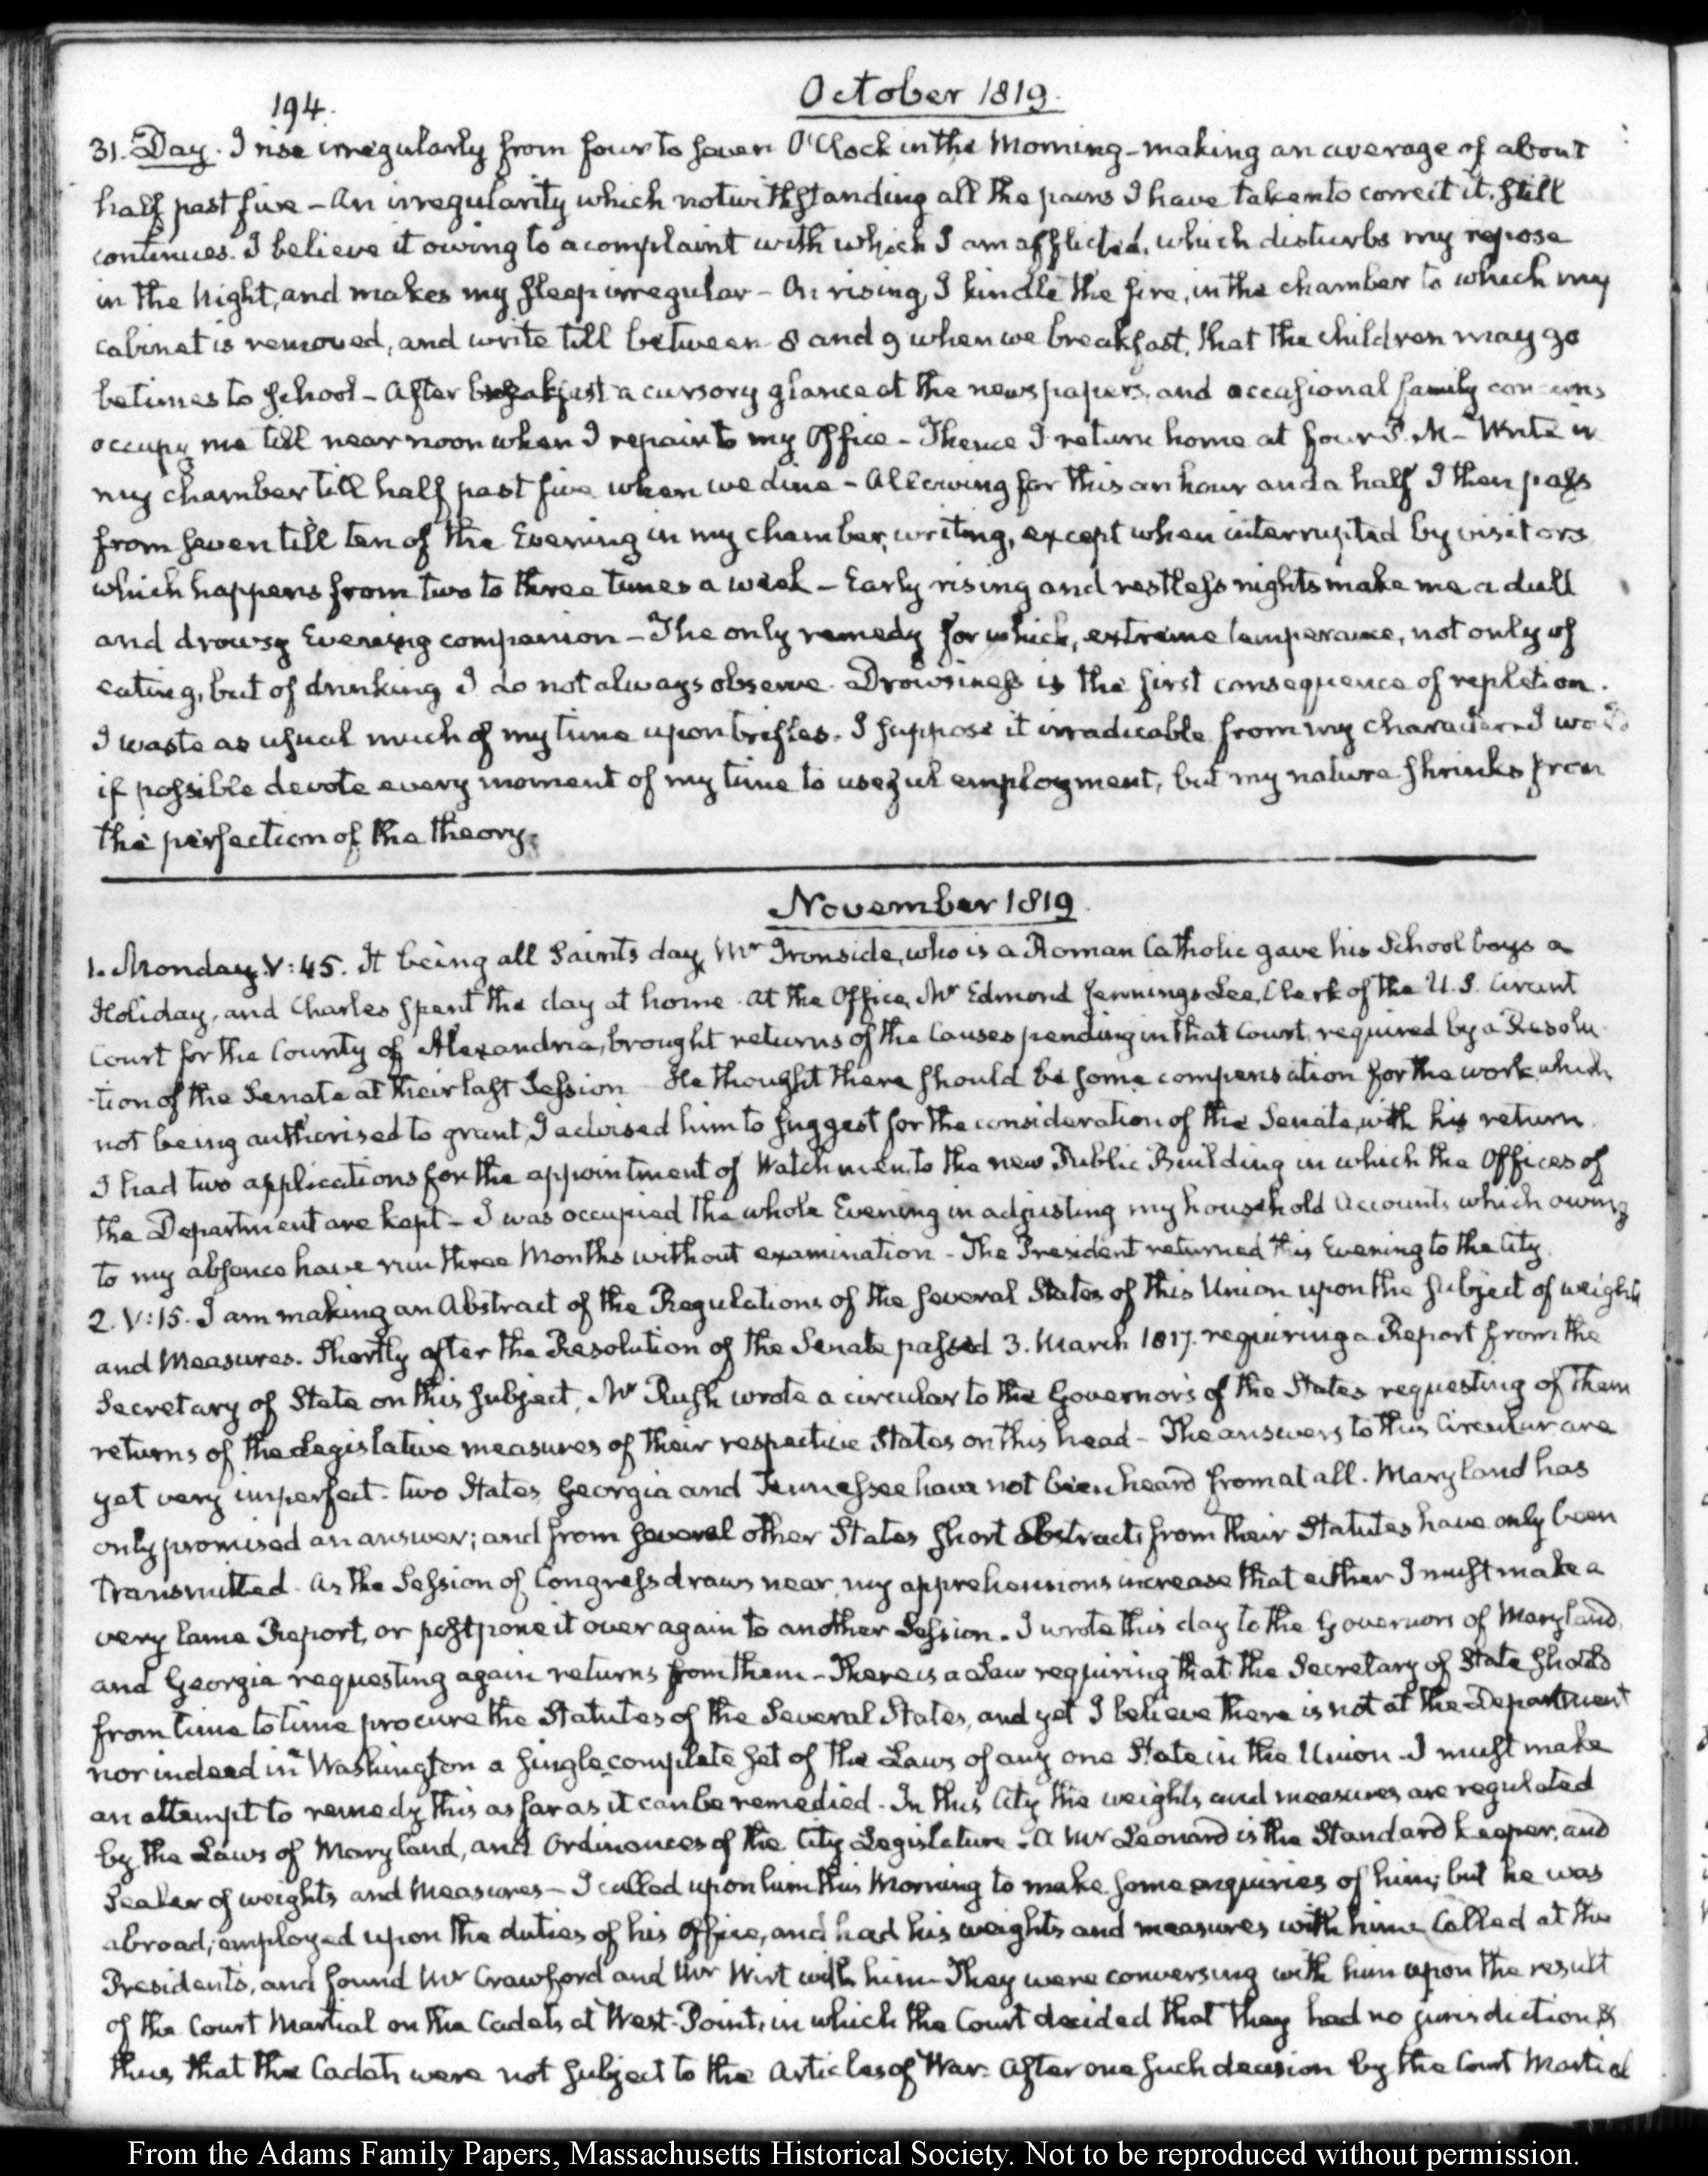 194.
October 1819.
31. Day. I rise irregularly from four to seven O'Clock in the Morning - making an average of about
half past five - An irregularity which notwithstanding all the pains I have taken to correct it, still
continues. I believe it owing to a complaint with which I am afflicted, which disturbs my repose
in the Night, and makes my sleep irregular - On rising, I kindle the fire, in the chamber to which my
cabinet is removed, and write till between 8 and 9 when we breakfast, that the children may go
betimes to School - After breakfast a cursory glance at the newspapers, and occasional family concerns
occupy me till near noon when I repair to my Office - Thence I return home at four P.M - Write in
my chamber till half past five when we dine - Allowing for this an hour and a half I then pass
from seven till ten of the Evening in my chamber, writing, except when interrupted by visitors
which happens from two to three times a week - Early rising and restless nights make me a dull
and drowsy Evening companion - The only remedy for which, extreme temperance, not only of
eating, but of drinking I do not always observe. Drowsiness is the first consequence of repletion.
I waste as usual much of my time upon trifles. I suppose it irradicable from my character. I would
if possible devote every moment of my time to useful employment, but my nature shrinks from
the perfection of the theory.
November 1819.
1. Monday. V:45. It being all Saints day, Mr Ironside, who is a Roman Catholic gave his School boys a
Holiday, and Charles spent the day at home. At the Office, Mr Edmond Jennings Lee, Clerk of the U.S. Circuit
Court for the County of Alexandria, brought returns of the Causes pending in that Court, required by a Resolu-
-tion of the Senate at their last Session He thought there should be some compensation for the work, which
not being authorised to grant, I advised him to suggest for the consideration of the Senate, with his return.
I had two applications for the appointment of Watchmen, to the new Public Building in which the Offices of
the Department are kept - I was occupied the whole Evening in adjusting my household Accounts which owing
to my absence have run three Months without examination - The President returned this Evening to the City.
2. V:15. I am making an Abstract of the Regulations of the several States of this Union upon the subject of weights
and Measures. Shortly after the Resolution of the Senate passed 3. March 1817. requiring a Report from the
Secretary of State on this subject, Mr Rush wrote a circular to the Governors of the States requesting of them
returns of the Legislative measures of their respective States on this head - The answers to this Circular are
yet very imperfect. two States, Georgia and Tennessee have not been heard from at all. Maryland has
only promised an answer; and from several other States short abstracts from their Statutes have only been
transmitted. As the Session of Congress draws near, my apprehensions increase that either I must make a
very lame Report, or postpone it over again to another Session. I wrote this day to the Governors of Maryland,
and Georgia requesting again returns from them - There is a Law requiring that the Secretary of State should
from time to time procure the Statutes of the Several States, and yet I believe there is not at the Department
nor indeed in Washington a single complete set of the Laws of any one State in the Union. I must make
an attempt to remedy this as far as it can be remedied. In this City the weights and measures are regulated
by the Laws of Maryland, and Ordinances of the City Legislature. A Mr Leonard is the Standard keeper, and
Sealer of weights and Measures - I called upon him this Morning to make some enquiries of him; but he was
abroad, employed upon the duties of his Office, and had his weights and measures with him. Called at the
Presidents, and found Mr Crawford and Mr Wirt with him - They were conversing with him upon the result
of the Court Martial on the Cadets at West-Point, in which the Court decided that they had no jurisdiction, &
thus that the Cadets were not subject to the Articles of War. After one such decision by the Court Martial
From the Adams Family Papers, Massachusetts Historical Society. Not to be reproduced without permission.